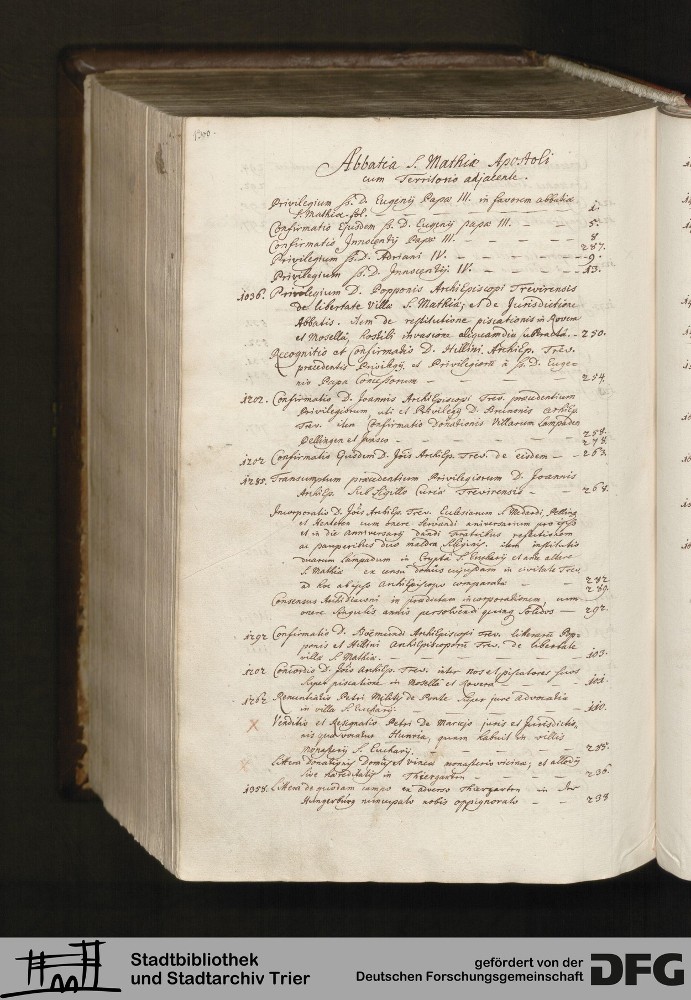 Abbatia S. Mathiæ Apostoli
cum Territorio adjacente.
Privilegium ß. D. Eugenij Papæ III. in favorem abbatiæ
S. Mathiæ fol. 1.
Confirmatio Ejusdem ß. D. Eugenij papæ III. 5.
Confirmatio Innocentij Papæ III. 8
287.
Privilegium ß. D. Adriani IV. 9.
Privilegium ß. D. Innocentij IV. 13.
1036. Privilegium D. Popponis ArchiEpiscopi Trevirensis
de libertate villæ S. Mathiæ; et de Jurisdictione
Abbatis. Item de restitutione piscationis in Rovera
et Mosella, hostili invasione aliquamdiu subtracta. 250.
Recognitio et Confirmatio D. Hillini ArchiEp. Trev.
præcedentis Privilegij, et Privilegiorum à ß. D. Euge-
nio Papa Concessorum 254.
1202. Confirmatio D. Joannis ArchiEpiscopi Trev. præcedentium
Privilegiorum, uti et Privilegij D. Brunonis ArchiEp.
Trev. item Confirmatio Donationis Villarum Lampaden
Pellingen et 258.
278.
1202 Confirmatio Ejusdem D. Jois ArchiEp. Trev. de eisdem 263.
1285. Transumptum præcedentium Privilegiorum D. Joannis
ArchiEp. Sub Sigillo Curiæ Trevirensis 268.
Incorporatio D. Jois ArchiEp. Trev. Ecclesiarum S. Medardi, Pelling
et Hentern cum onere servandi anniversarium pro ipso
et in die Anniversarij dandi fratribus refectionem
ac pauperibus duo maldra Siliginis. item institutio
duarum lampadum in Crypta S. Eucharij et ante altare
S. Mathiæ ex censu domus cujusdam in civitate Trev.
ad hoc ab ipso ArchiEpiscopo comparatæ 282.
289.
Consensus Archidiaconi in prædictam incorporationem, cum
onere singulis annis persolvendi quinq Solidos 292.
1292 Confirmatio D. Boëmundi ArchiEpiscopi Trev. literarum Pop-
ponis et Hillini ArchiEpiscoporum Trev. de libertate
villæ S. Mathiæ. 103.
1202 Concordia D. Jois ArchiEp. Trev. inter nos et piscatores suos
super piscatione in Mosella et Rovera 101.
1262 Renuntiatio Petri Militis de Ponte super jure advocatiæ
in villa S. Eucharij 110.
Venditio et Resignatio Petri De juris et Jurisdictio-
nis quæ vocatur Hunria, quam habuit in villis
Monasterij S. Eucharij. 235.
Littera Donationis Domûs et vineæ monasterio vicinæ, et allodij
sive hæreditatis in Thiergarten 236.
1358. Littera de quodam campo ex adverso Thiergarten in der
Hungerburg nuncupato nobis oppignorato 238
Stadtbibliothek
und Stadtarchiv Trier
gefördert von der
Deutschen Forschungsgemeinschaft
DFG